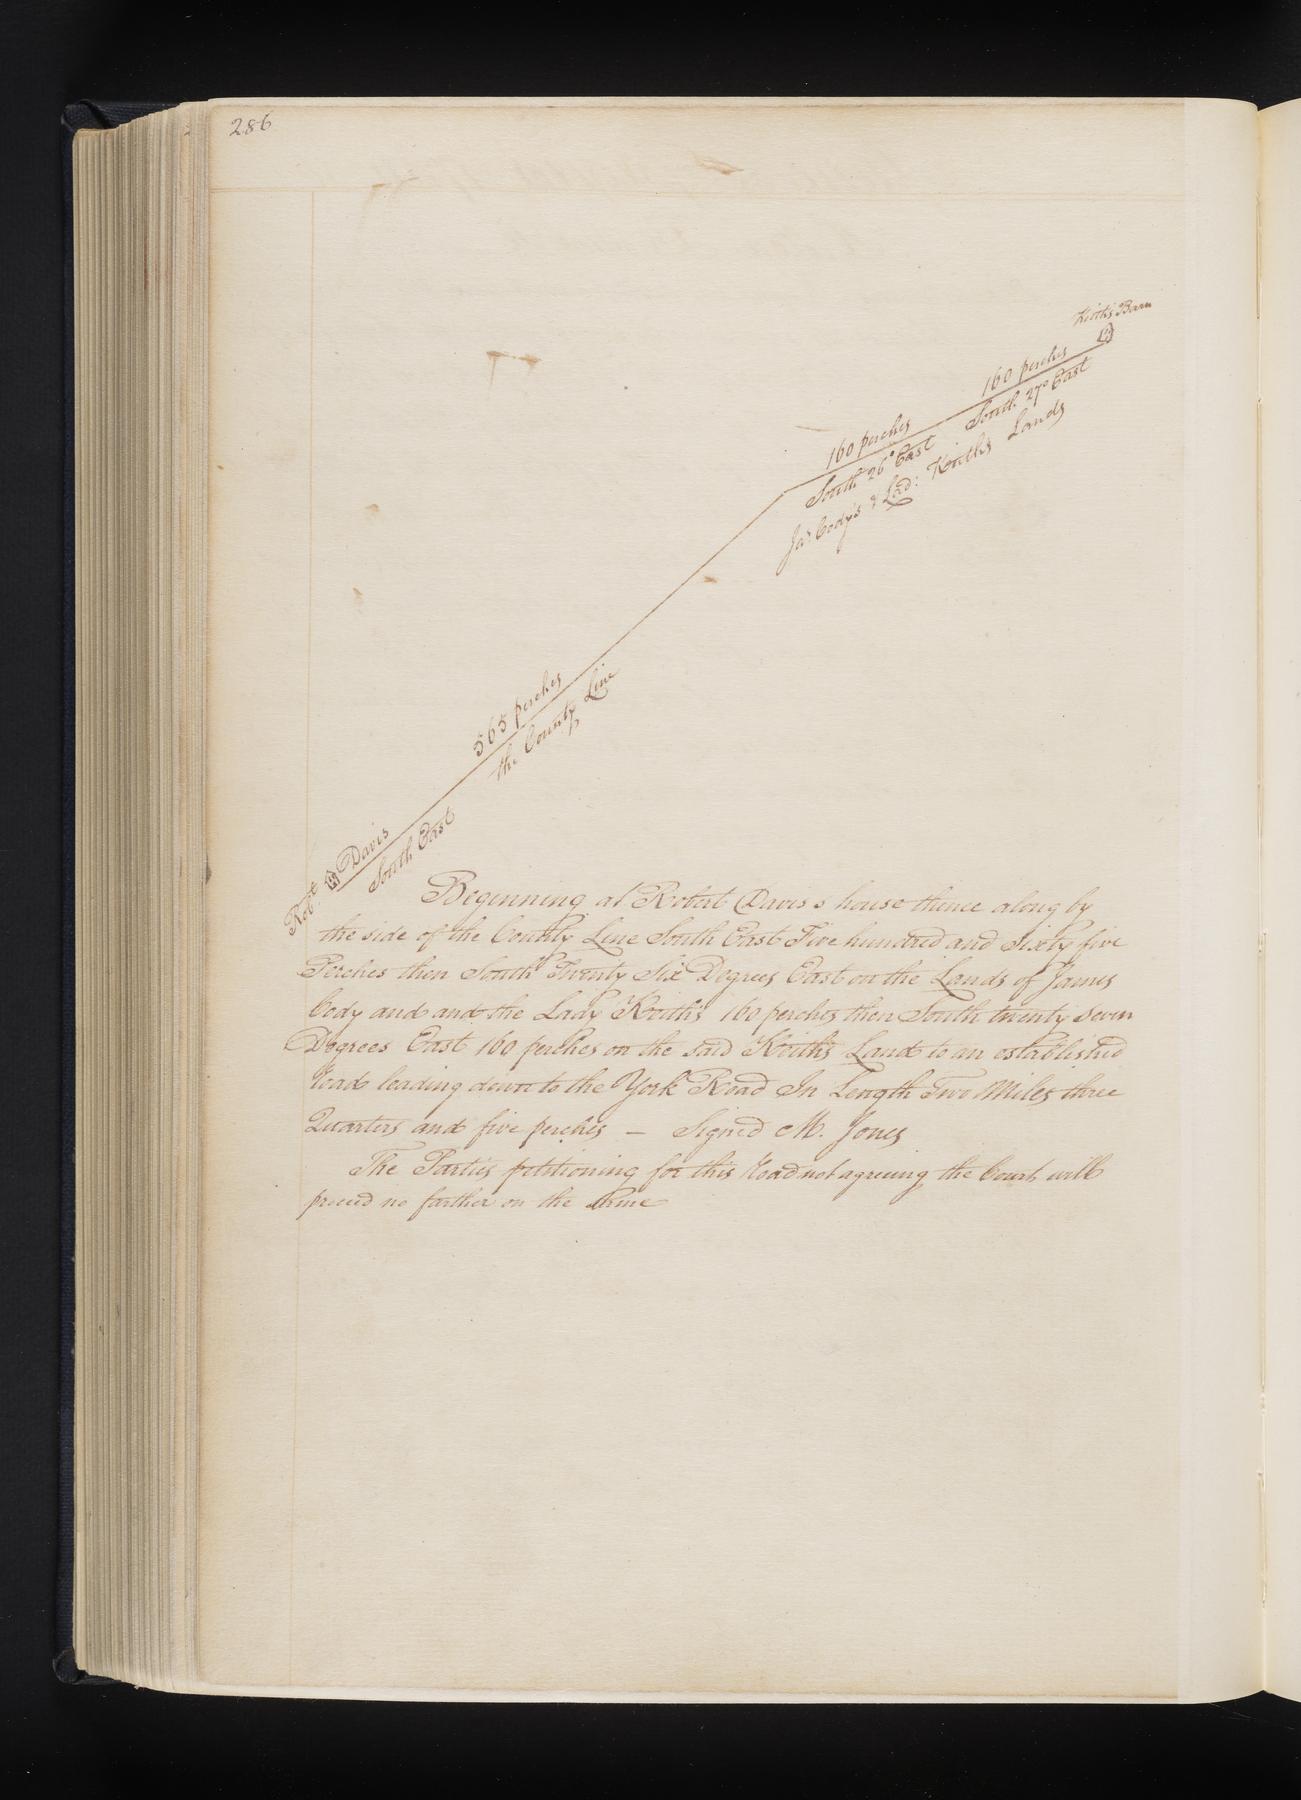 286
Kieth's Barn
160 perches
South 27° East
160 perches
South 26° East
Jas. Codys & Lad: Kieths Lands
565 perches
the County Line
Robt. Davis
South East
Beginning at Robert Davis s house thence along by
the side of the County Line South East Five hundred and Sixty five
Perches then South Twenty Six Degrees East on the Lands of James
Cody and and the Lady Kieth's 160 perches then South twenty seven
Degrees East 160 perches on the said Kieth's Land to an established
Road leading down to the York Road In Length Two Miles three
Quarters and five perches — Signed M. Jones
The Parties petitioning for this Road not agreeing the Court will
proceed no farther on the Same